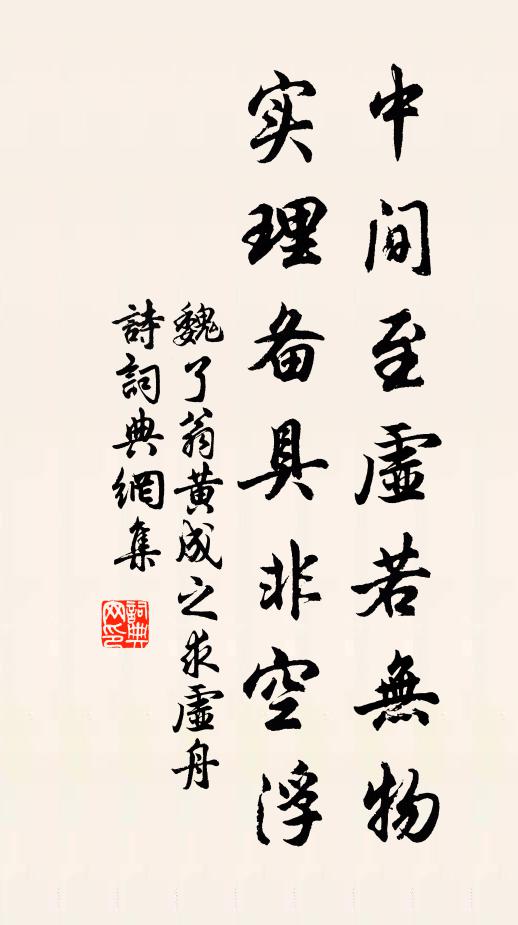 中间至虛若無物
实理备具非空浮
魏了翁黄成之求虛舟
詩詞典網集
詞典网印